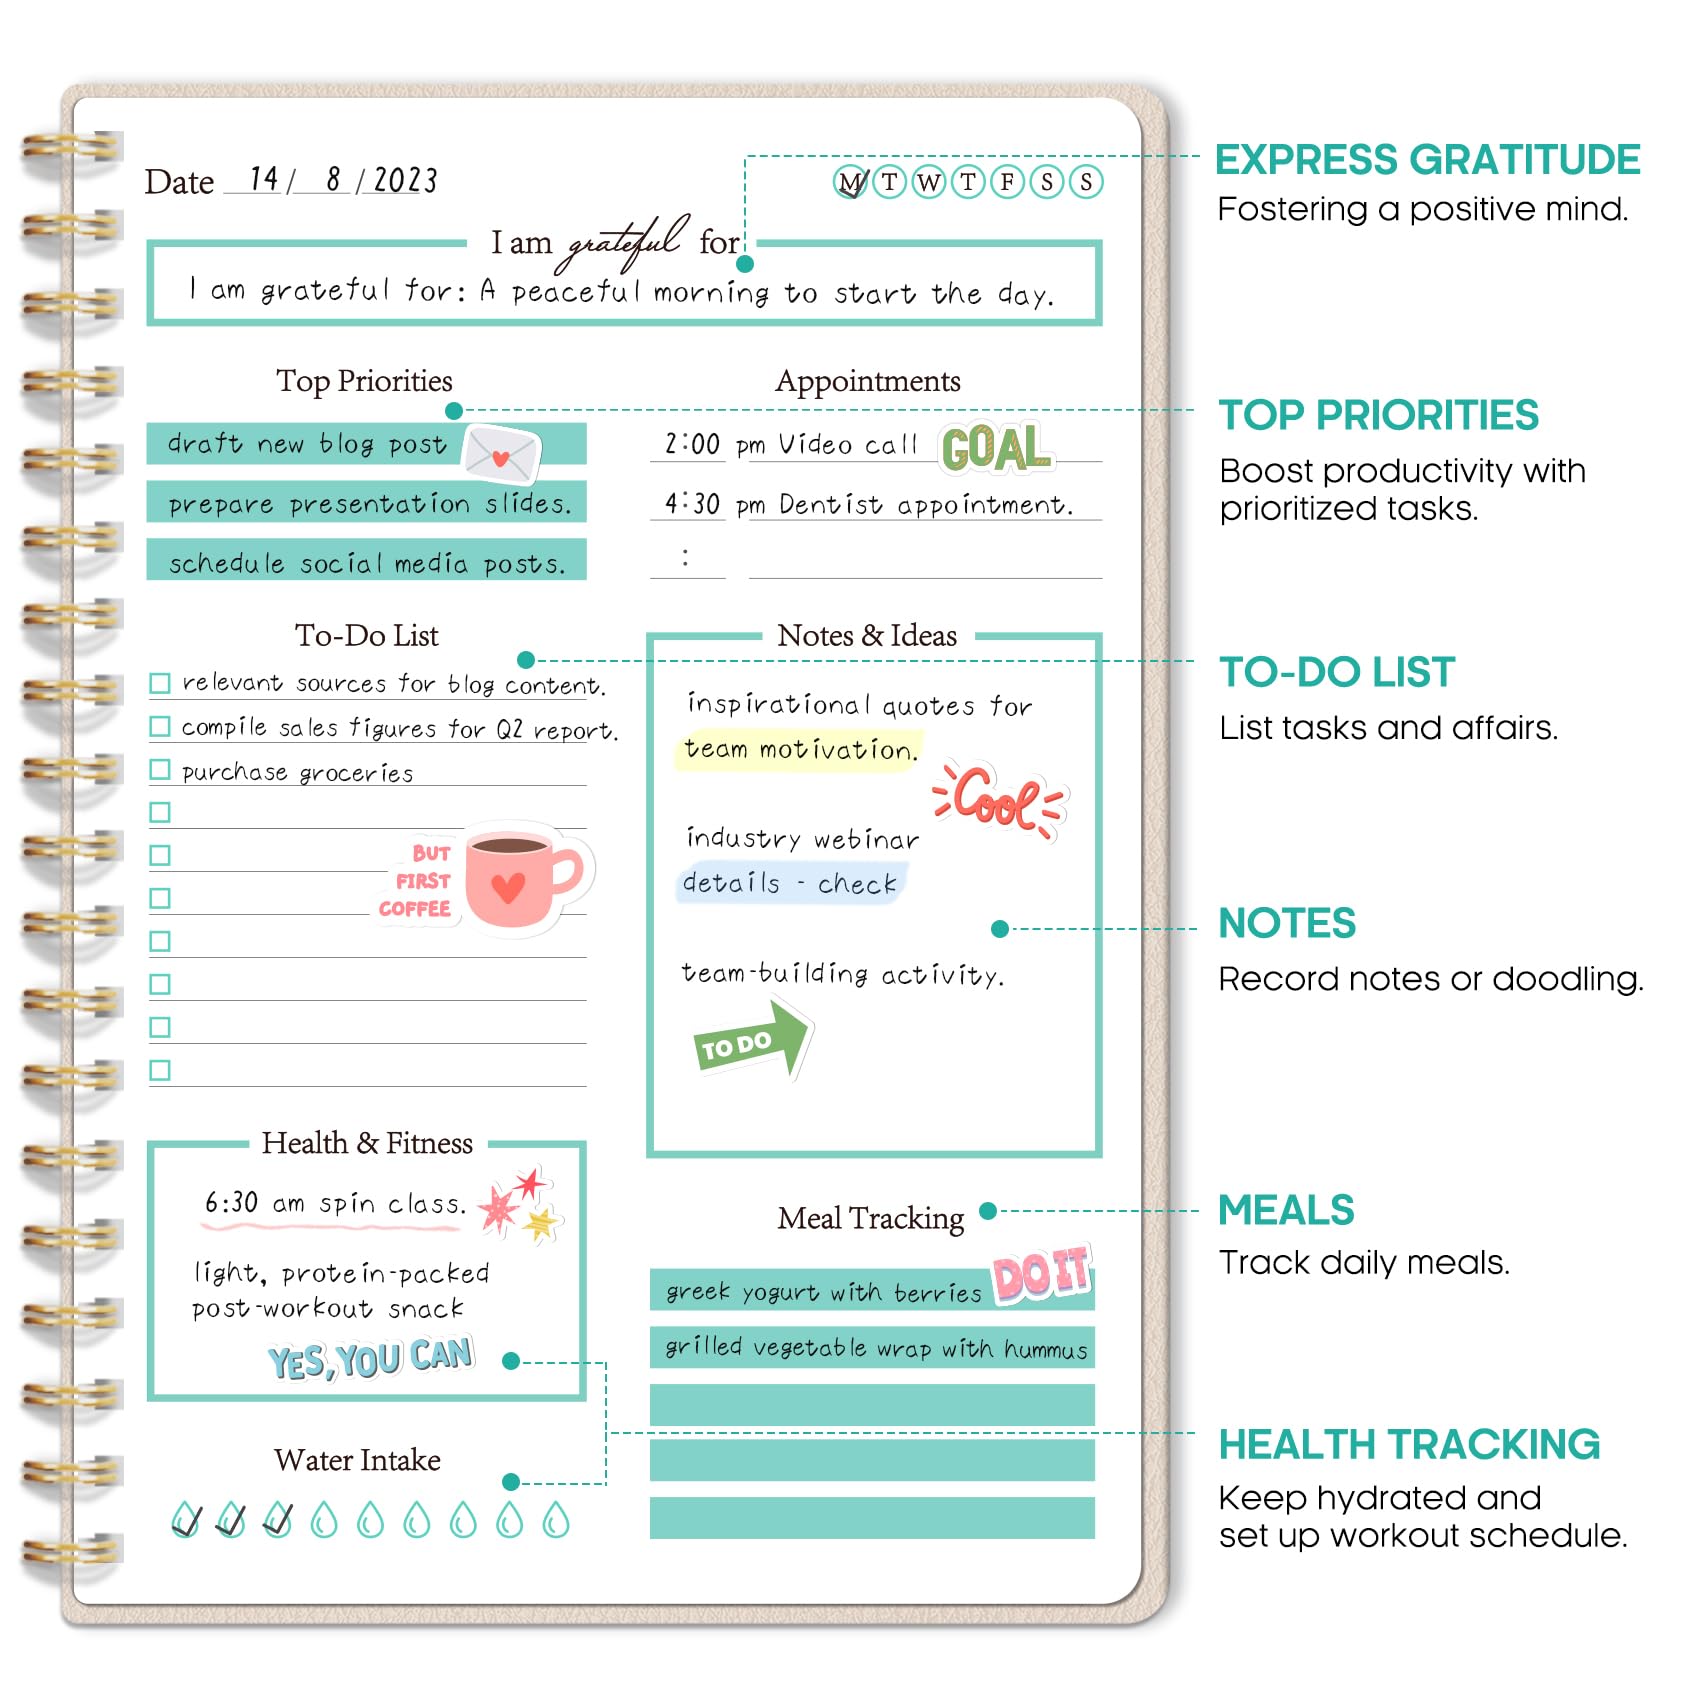 Date 14 / 8 / 2023
M T W T F S S
I am grateful for
I am grateful for: A peaceful morning to start the day.
Top Priorities
draft new blog post
prepare presentation slides.
schedule social media posts.
Appointments
2:00 pm Video call
GOAL
4:30 pm Dentist appointment.
:
To-Do List
relevant sources for blog content.
compile sales figures for Q2 report.
purchase groceries
BUT
FIRST
COFFEE
Notes & Ideas
inspirational quotes for
team motivation.
Cool
industry webinar
details - check
team-building activity.
TO DO
Health & Fitness
6:30 am spin class.
light, protein-packed
post-workout snack
YES, YOU CAN
Water Intake
Meal Tracking
DO IT
greek yogurt with berries
grilled vegetable wrap with hummus
EXPRESS GRATITUDE
Fostering a positive mind.
TOP PRIORITIES
Boost productivity with
prioritized tasks.
TO-DO LIST
List tasks and affairs.
NOTES
Record notes or doodling.
MEALS
Track daily meals.
HEALTH TRACKING
Keep hydrated and
set up workout schedule.